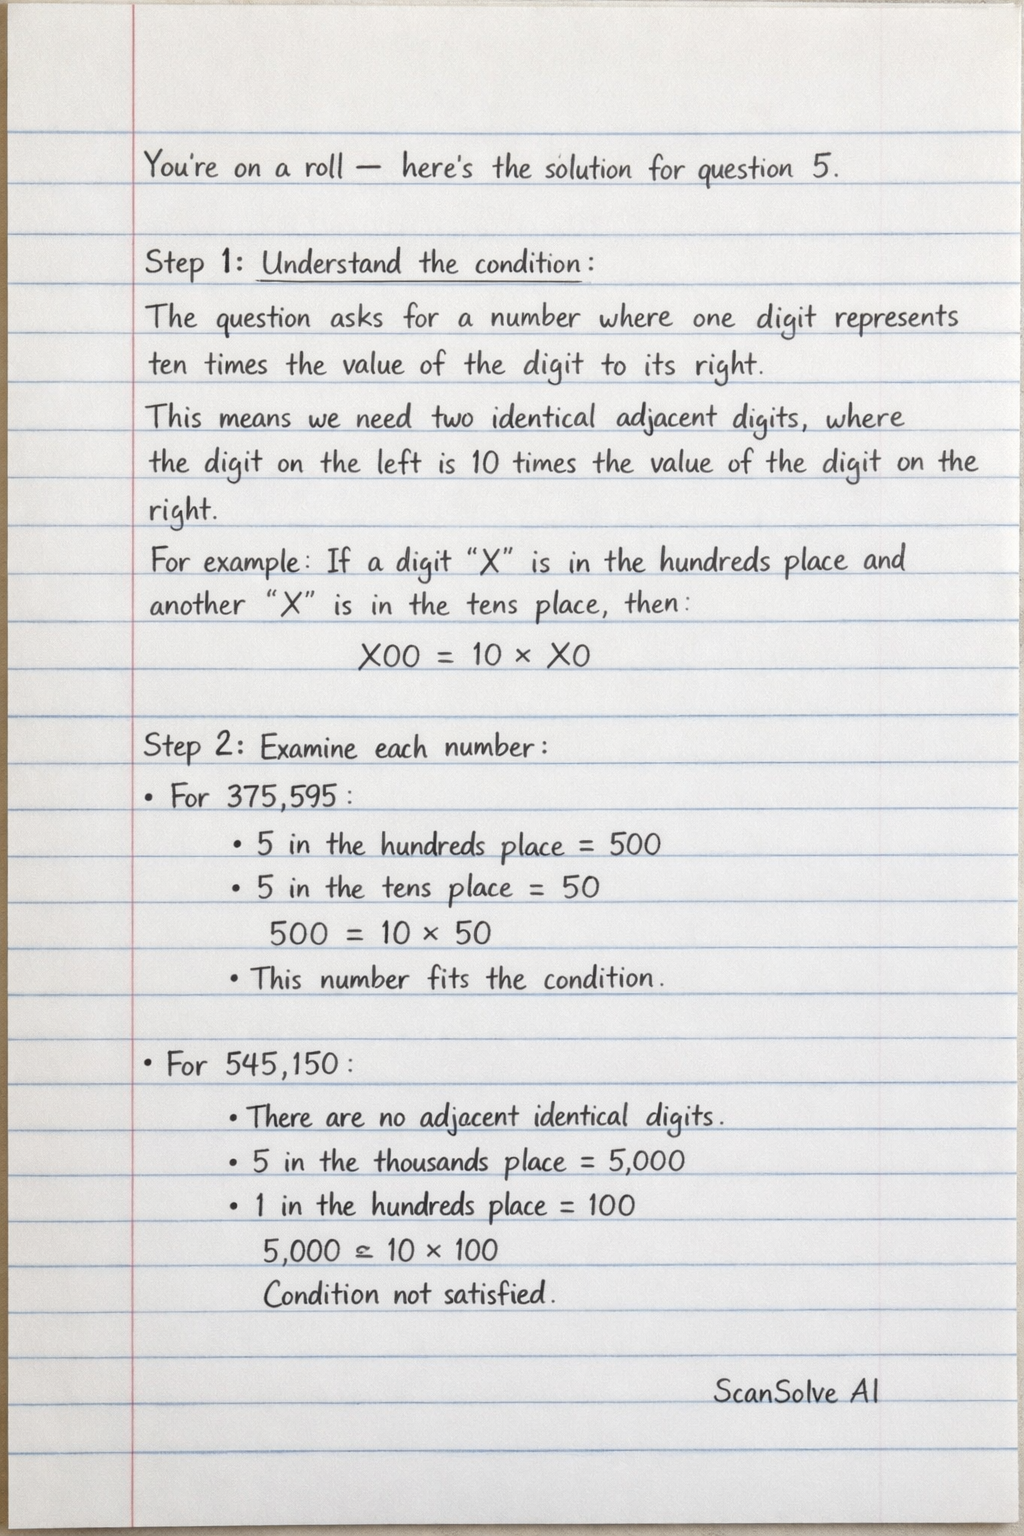 You're on a roll — here's the solution for question 5.
Step 1: Understand the condition:
The question asks for a number where one digit represents
ten times the value of the digit to its right.
This means we need two identical adjacent digits, where
the digit on the left is 10 times the value of the digit on the
right.
For example: If a digit “X” is in the hundreds place and
another “X” is in the tens place, then:
X00 = 10 × X0
Step 2: Examine each number:
• For 375,595:
• 5 in the hundreds place = 500
• 5 in the tens place = 50
500 = 10 × 50
• This number fits the condition.
• For 545,150:
• There are no adjacent identical digits.
• 5 in the thousands place = 5,000
• 1 in the hundreds place = 100
5,000 ≌ 10 × 100
Condition not satisfied.
ScanSolve AI